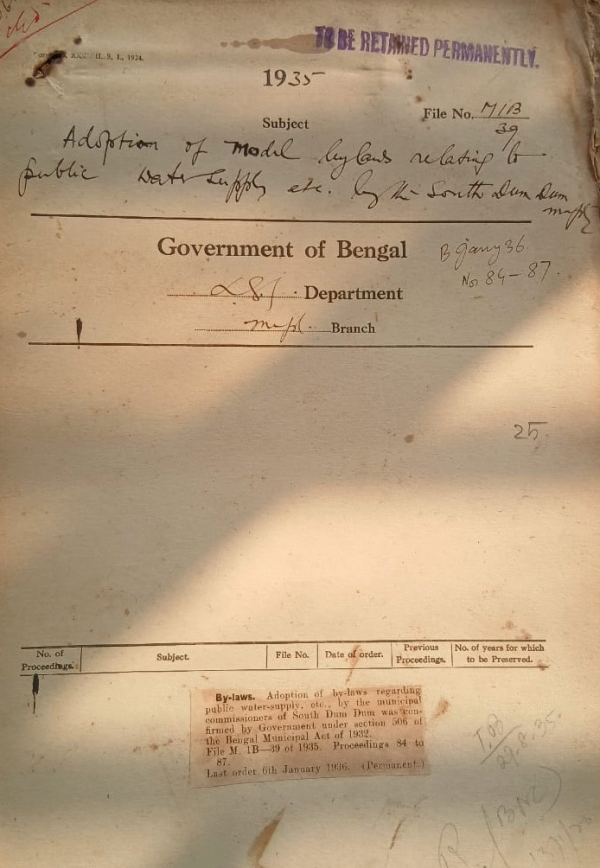 TO BE RETAINED PERMANENTLY.
1935
File No. M1B
39
Subject
Adoption of Model bylaws relating to
public water supply etc. by the South Dum Dum
mcply
Government of Bengal
B Jany 36.
Nos 84-87.
L.S.G. Department
Mcpl. Branch
25.
No. of Proceedings. Subject. File No. Date of order. Previous Proceedings. No. of years for which to be Preserved.
By-laws. Adoption of by-laws regarding
public water-supply, etc., by the municipal
commissioners of South Dum Dum was con-
firmed by Government under section 506 of
the Bengal Municipal Act of 1932.
File M. 1B—39 of 1935. Proceedings 84 to
87.
Last order 6th January 1936. (Permanent.)
22.8.35